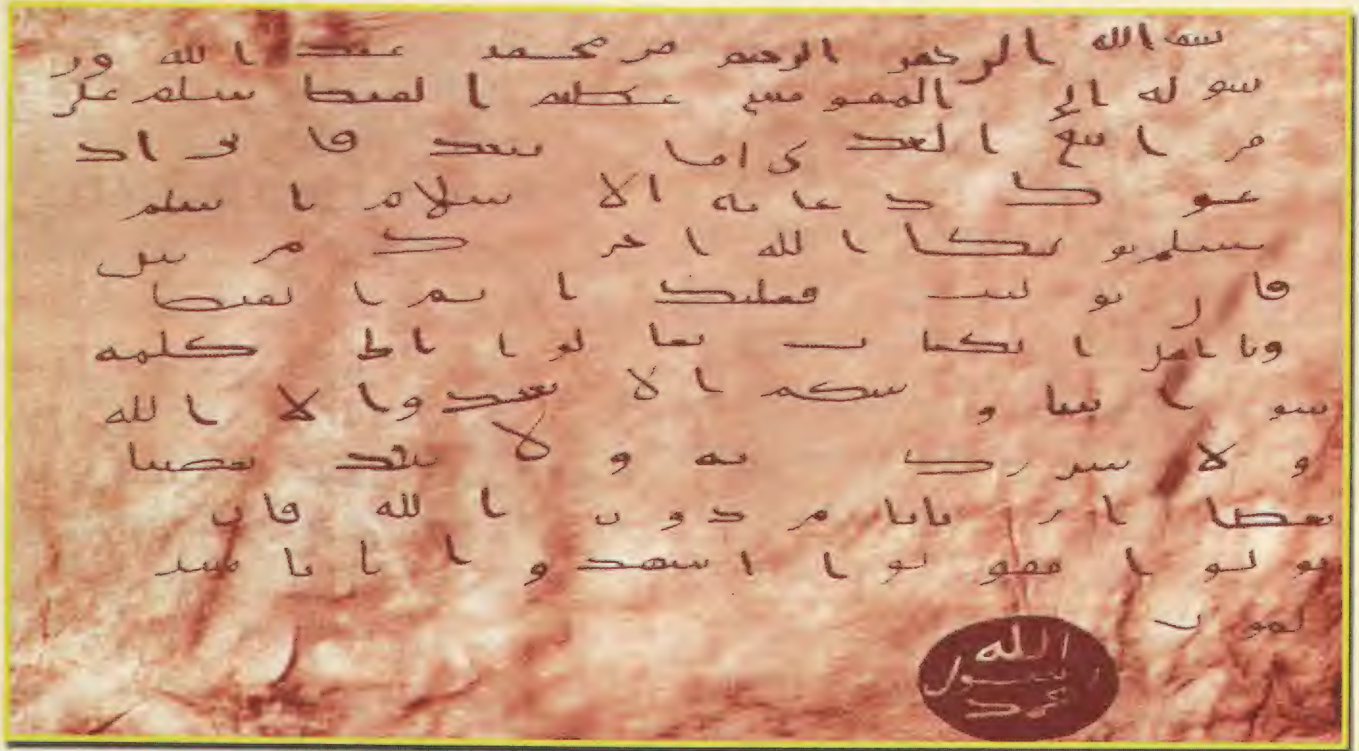 بسم الله الرحمن الرحيم من محمد عبد الله ور
سوله إلى المقوقس عظيم القبط سلام على
من اتبع الهدى اما بعد فانى اد
عوك بدعاية الاسلام اسلم
تسلم يوتك الله اجرك مرتين
فان توليت فعليك اثم القبط
ويا اهل الكتاب تعالوا الى كلمة
سواء بيننا وبينكم الا نعبد الا الله
ولا نشرك به ولا يتخذ بعضنا
بعضا اربابا من دون الله فان
تولوا فقولوا اشهدوا بانا مسـ
لمون
الله
رسول
محمد